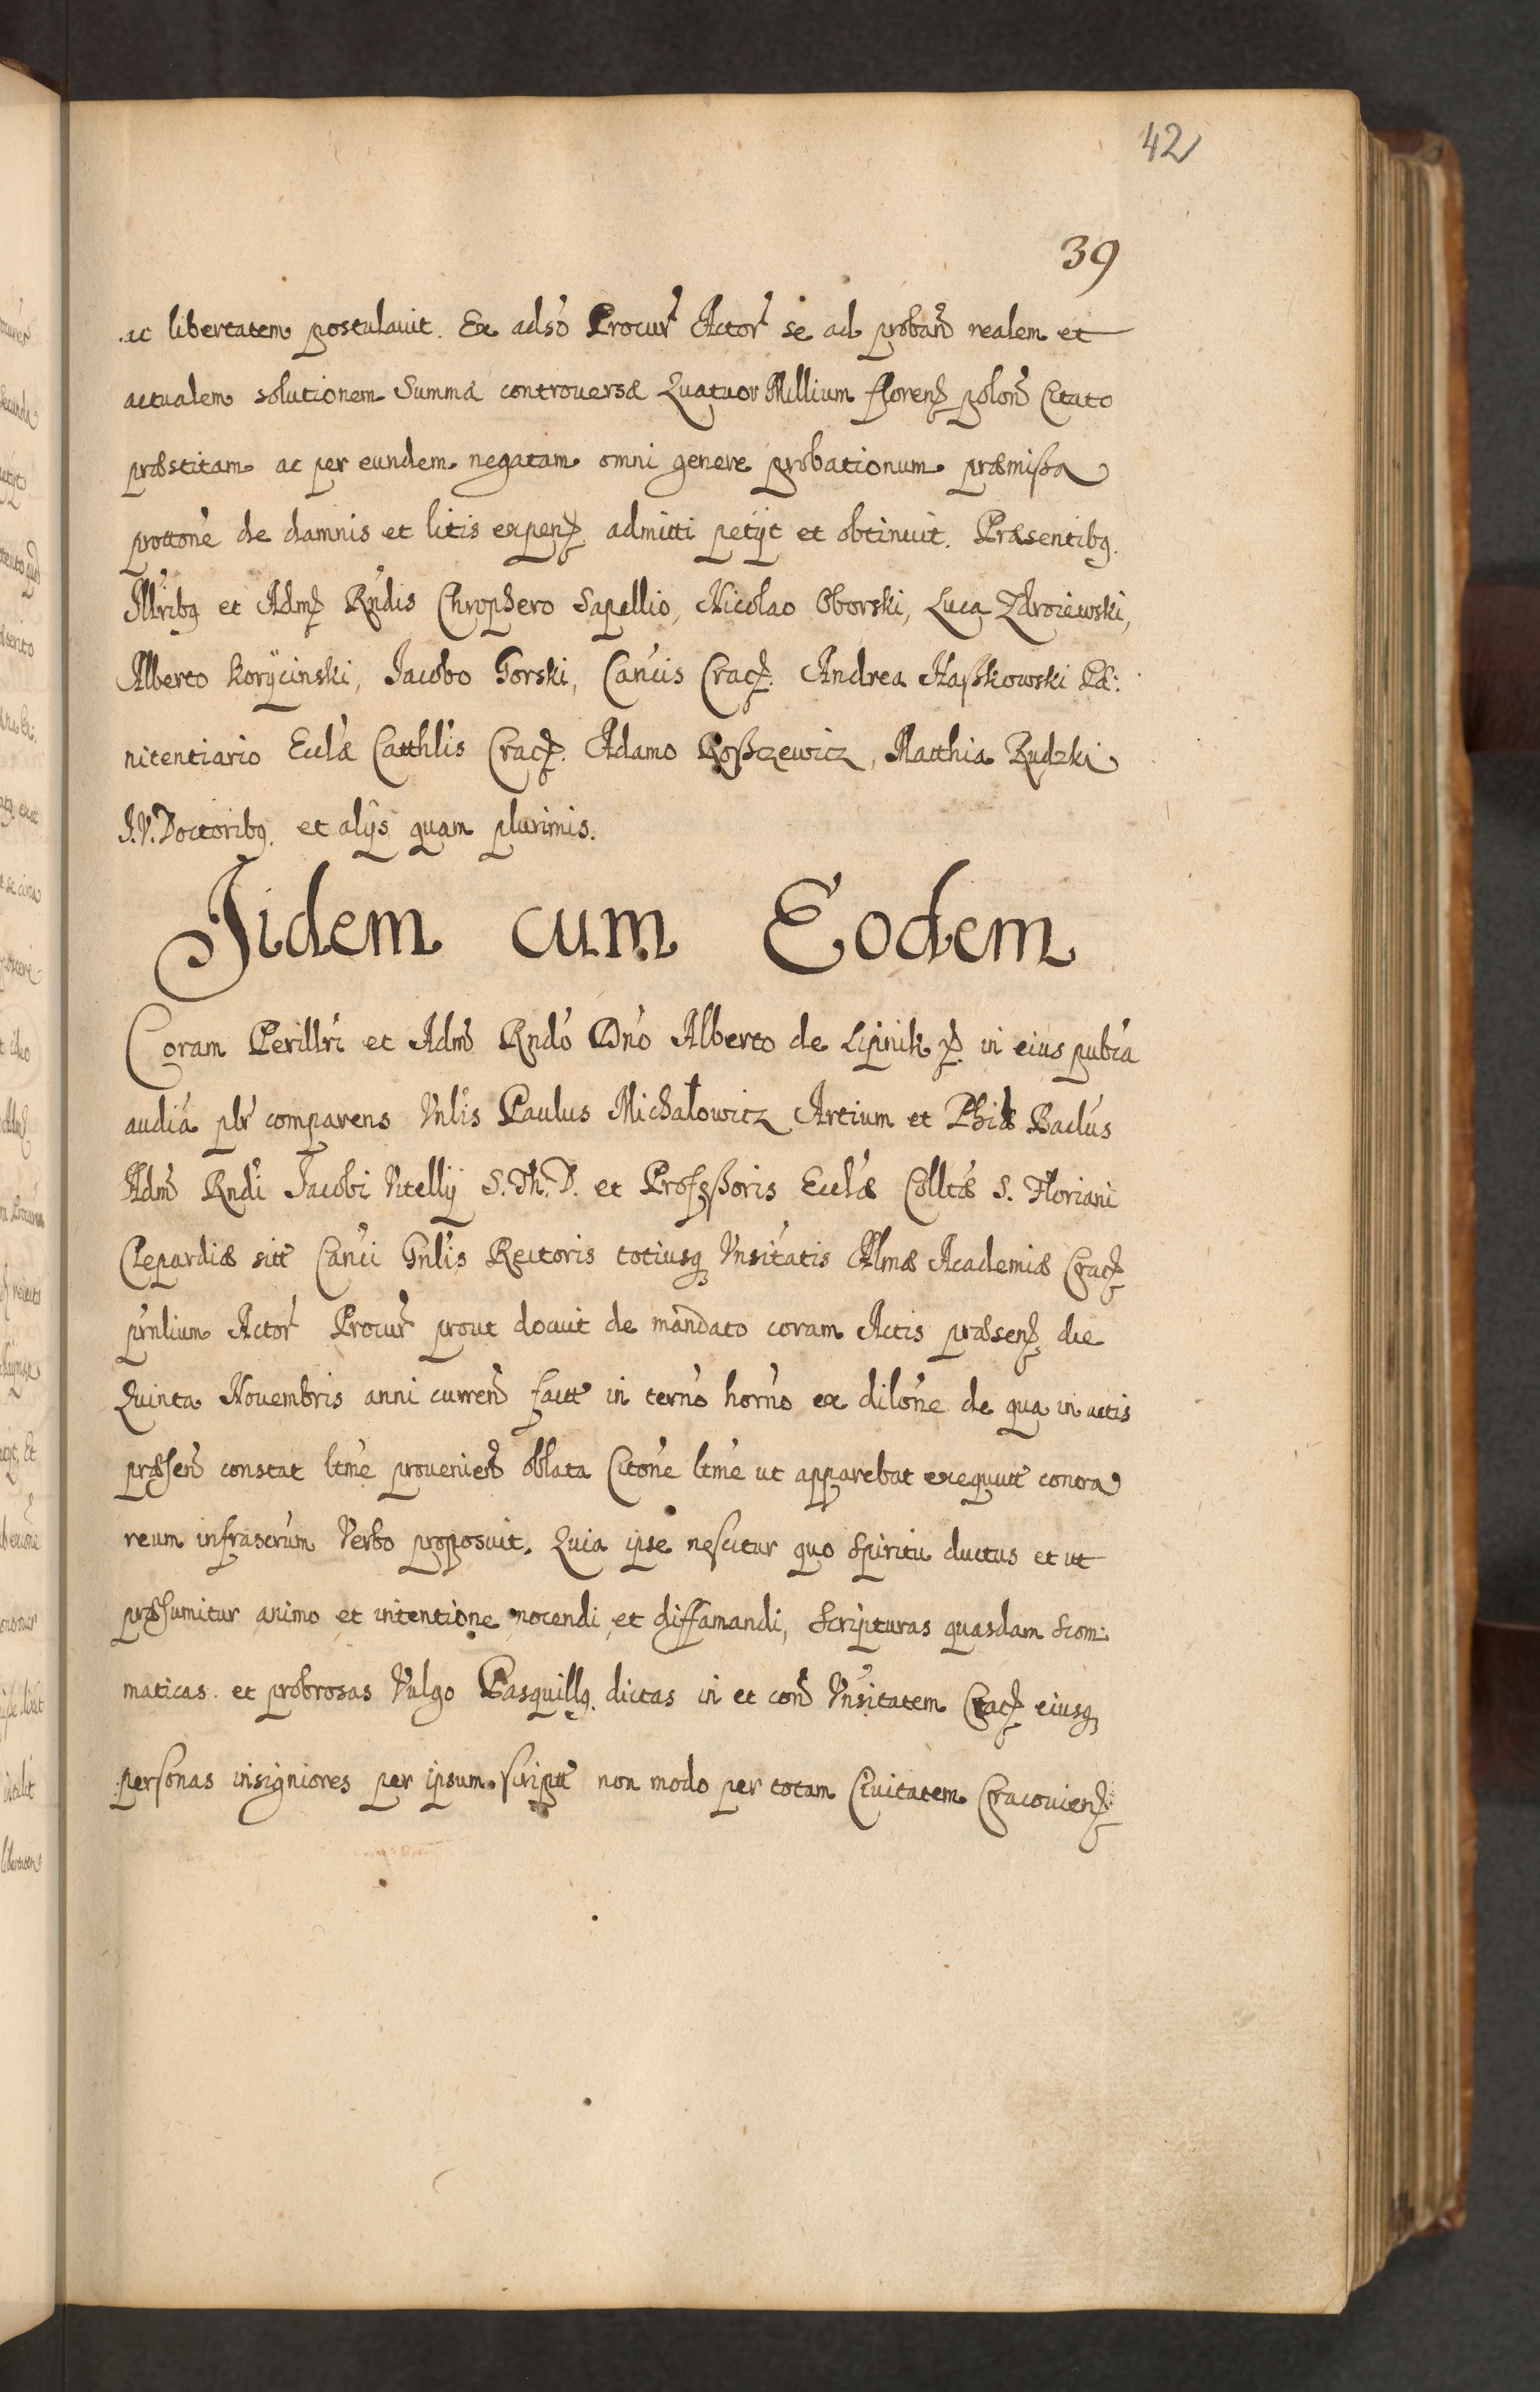 42
39
ac libertatem postulauit. Ex adso Procur Actor se ad proband realem et
actualem solutionem Summæ controversæ Quatuor Millium floren polon Citato
præstitam ac per eundem negatam omni genere probationum præmissa
prottone de damnis et litis expen admitti petijt et obtinuit. Præsentibq.
Illribq et Adm Rndis Chrophero Sapellio, Nicolao Oborski, Luca Zdroiewski,
Alberto Korÿcinski, Jacobo Gorski, Cancis Crac. Andrea Haßkowski Pæ:
nitentiario Ecclæ Catthlis Crac. Adamo Roßczewicz, Matthia Rudzki
J.V. Doctoribq. et alijs quam plurimis.
Jidem cum Eodem
Coram Perillri et Adm Rndo Dno Alberto de Lipnik p. in eius publca
audia plr comparens Vnlis Paulus Michałowicz Artium et Phiæ Baclus
Adm Rndi Jacobi Vitellij S. Th. D. et Profeßoris Ecclæ Colltæ S. Floriani
Clepardiæ sitt Canci Gnlis Rectoris totiusq Vnsitatis Almæ Academiæ Crac
prnlium Actor Procur prout docuit de mandato coram Actis præsen die
Quinta Nouembris anni curren factt in terno horno ex dilone de qua in actis
præsen constat ltme prouenien oblata Citone ltme ut apparebat exequutt contra
reum infrascrum Verbo proposuit. Quia ipse nescitur quo spiritu ductus et ut
præsumitur animo et intentione nocendi et diffamandi, scripturas quasdam scom:
maticas et probrosas Vulgo Pasquillq. dictas in et con Vnsitatem Crac eiusq
personas insigniores per ipsum scriptt non modo per totam Ciuitatem Cracouien